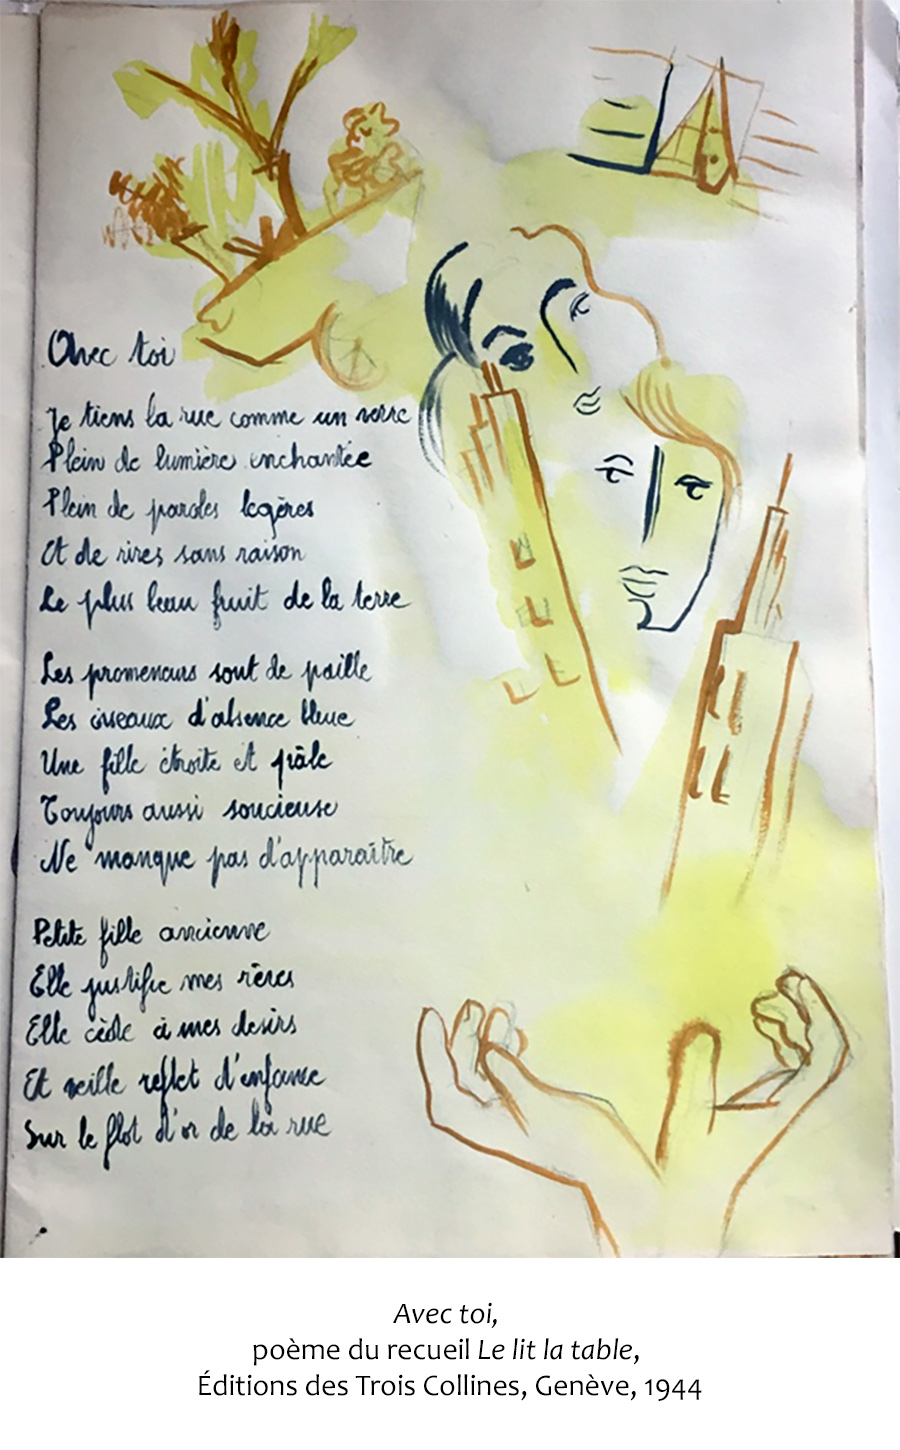 Avec toi
Je tiens la rue comme un verre
Plein de lumière enchantée
Plein de paroles légères
Et de rires sans raison
Le plus beau fruit de la terre
Les promeneurs sont de paille
Les oiseaux d'absence bleue
Une fille étroite et pâle
Toujours aussi soucieuse
Ne manque pas d'apparaître
Petite fille ancienne
Elle justifie mes rêves
Elle cède à mes desirs
Et veille reflet d'enfance
Sur le flot d'or de la rue
Avec toi,
poème du recueil Le lit la table,
Éditions des Trois Collines, Genève, 1944